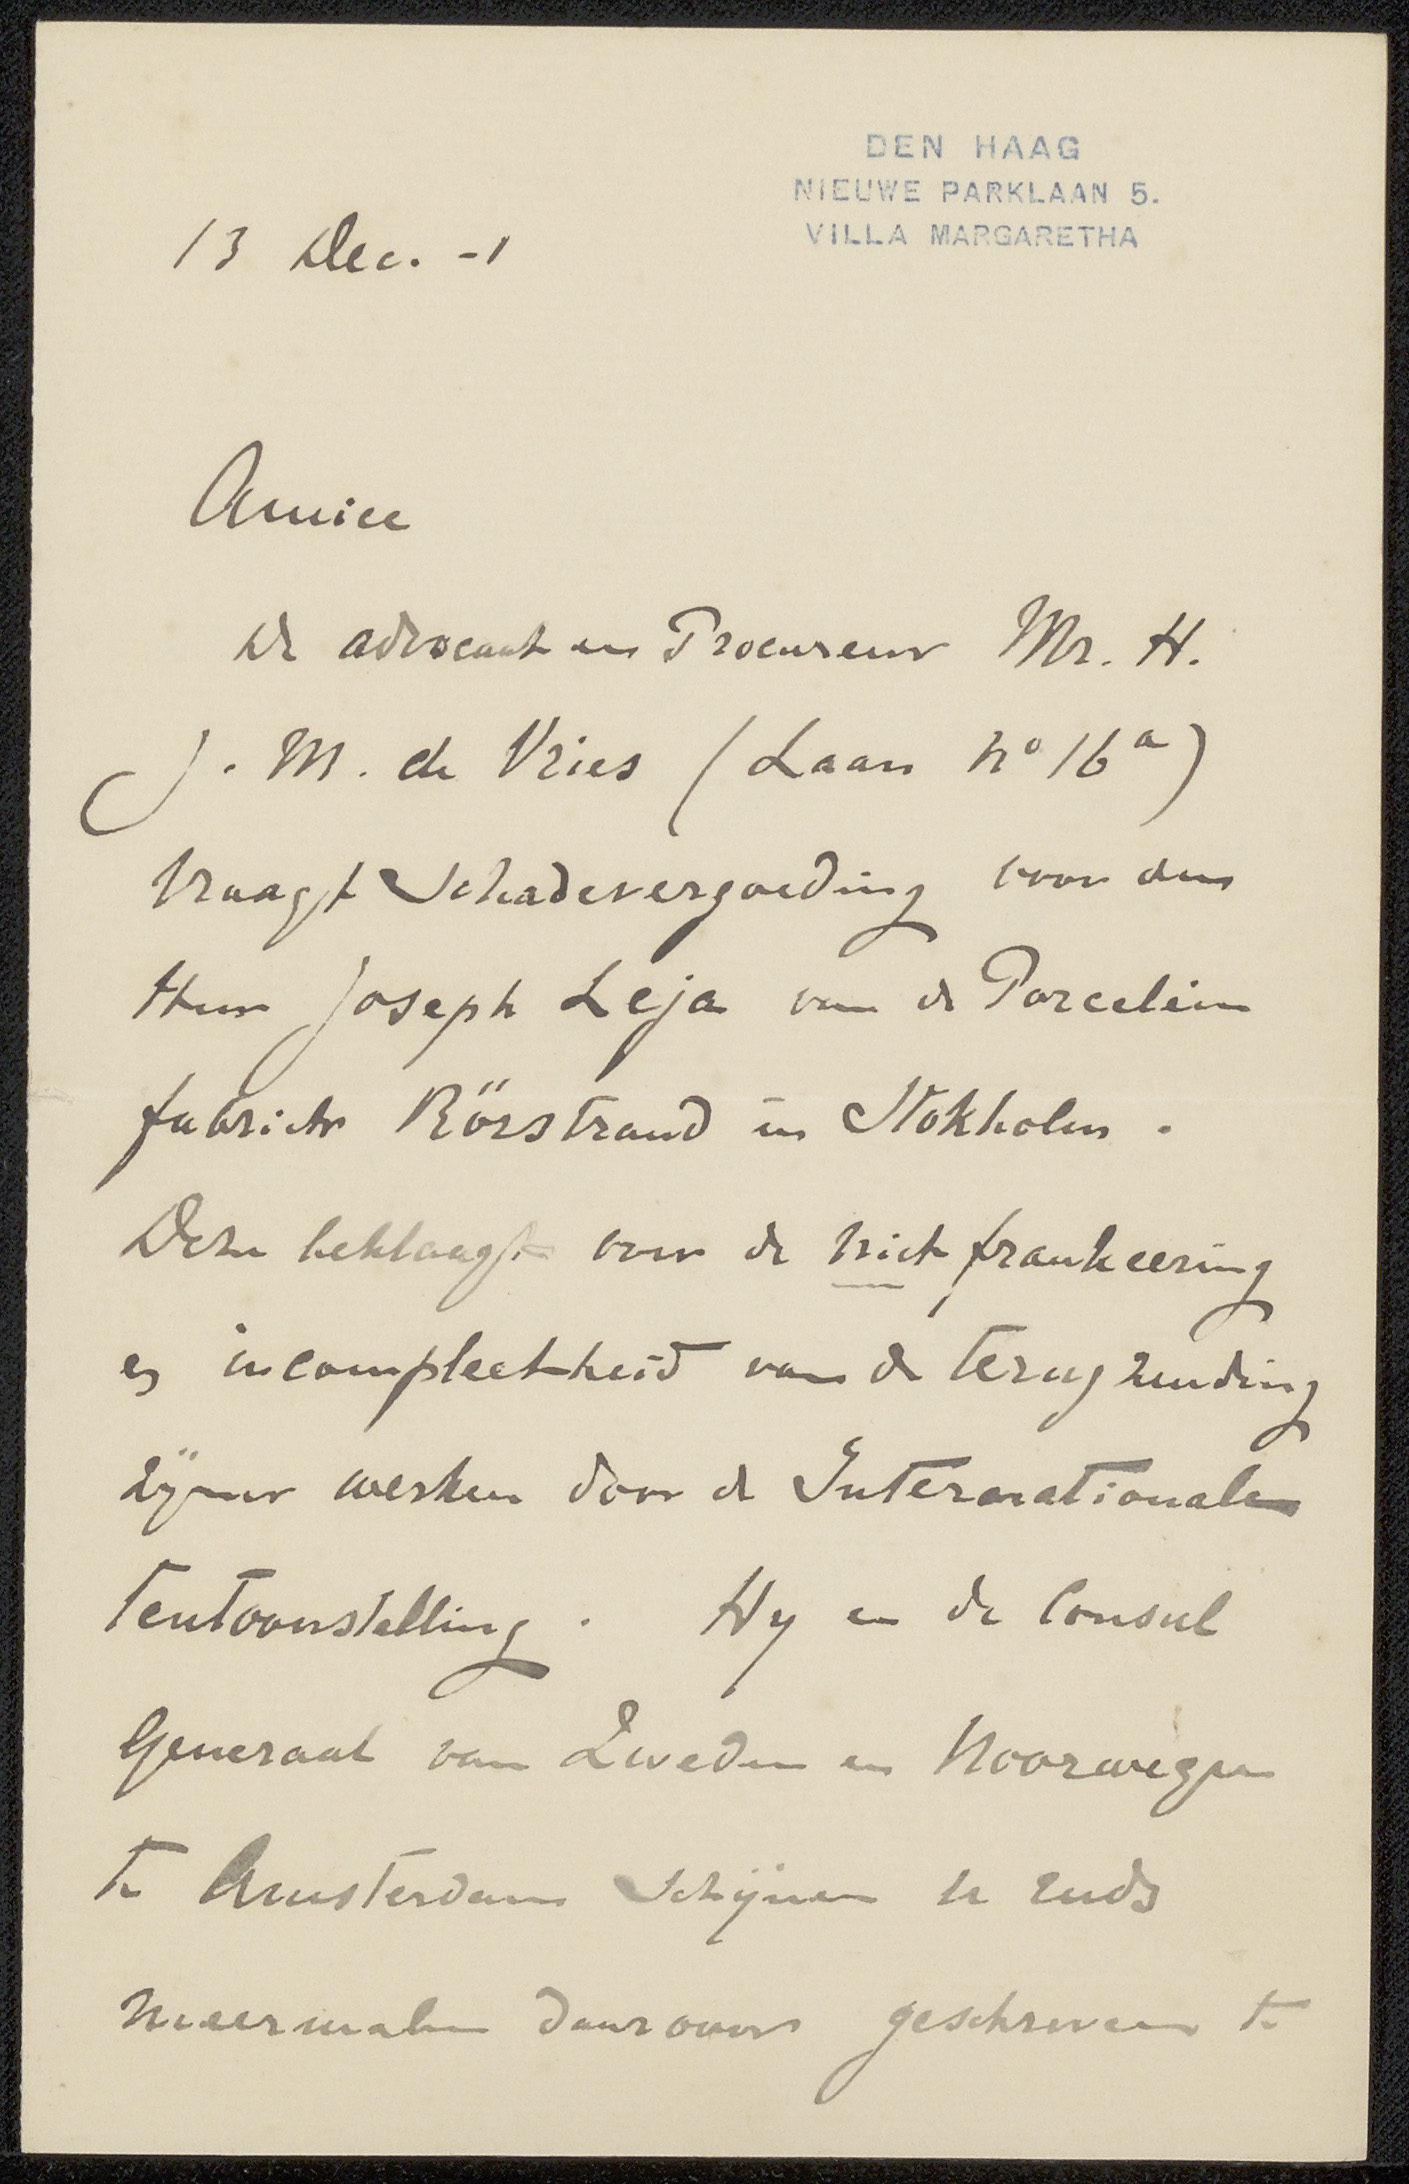 DEN HAAG
NIEUWE PARKLAAN 5.
VILLA MARGARETHA
13 Dec. -1
Amice
De advocaat en Procureur Mr. H.
J. M. de Vries (Laan No 16a)
vraagt Schadevergoeding voor den
Heer Joseph Leja van de Porcelein
fabriek Rörstrand in Stokholm.
Deze beklaagt over de niet frankeering
en incompleetheid van de terugzending
zijner werken door de Internationale
tentoonstelling. Hy en de Consul
Generaal van Zweden en Noorwegen
te Amsterdam schijnen reeds
meermalen daarover geschreven te